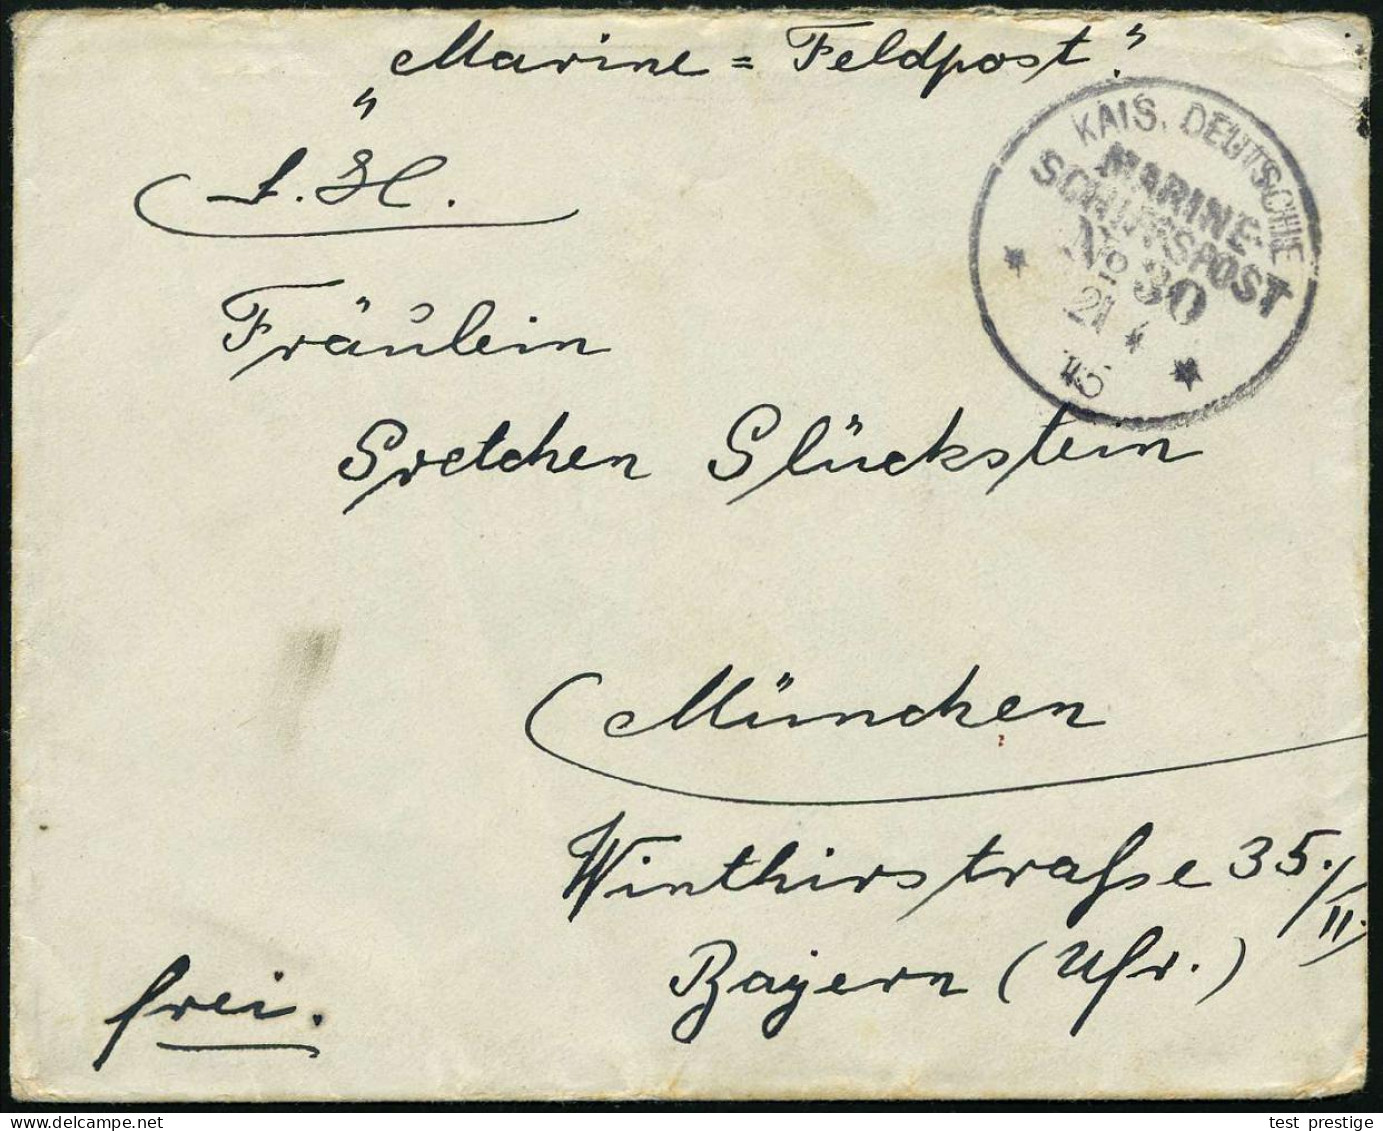 "Marine = Feldpost."
KAIS. DEUTSCHE
MARINE-
SCHIFFSPOST
No 30
21 *
15
* *
Fräulein
Gretchen Glückstein
München
Winthirstrasse 35./II.
Bayern (Ufr.)
frei.
test_prestige